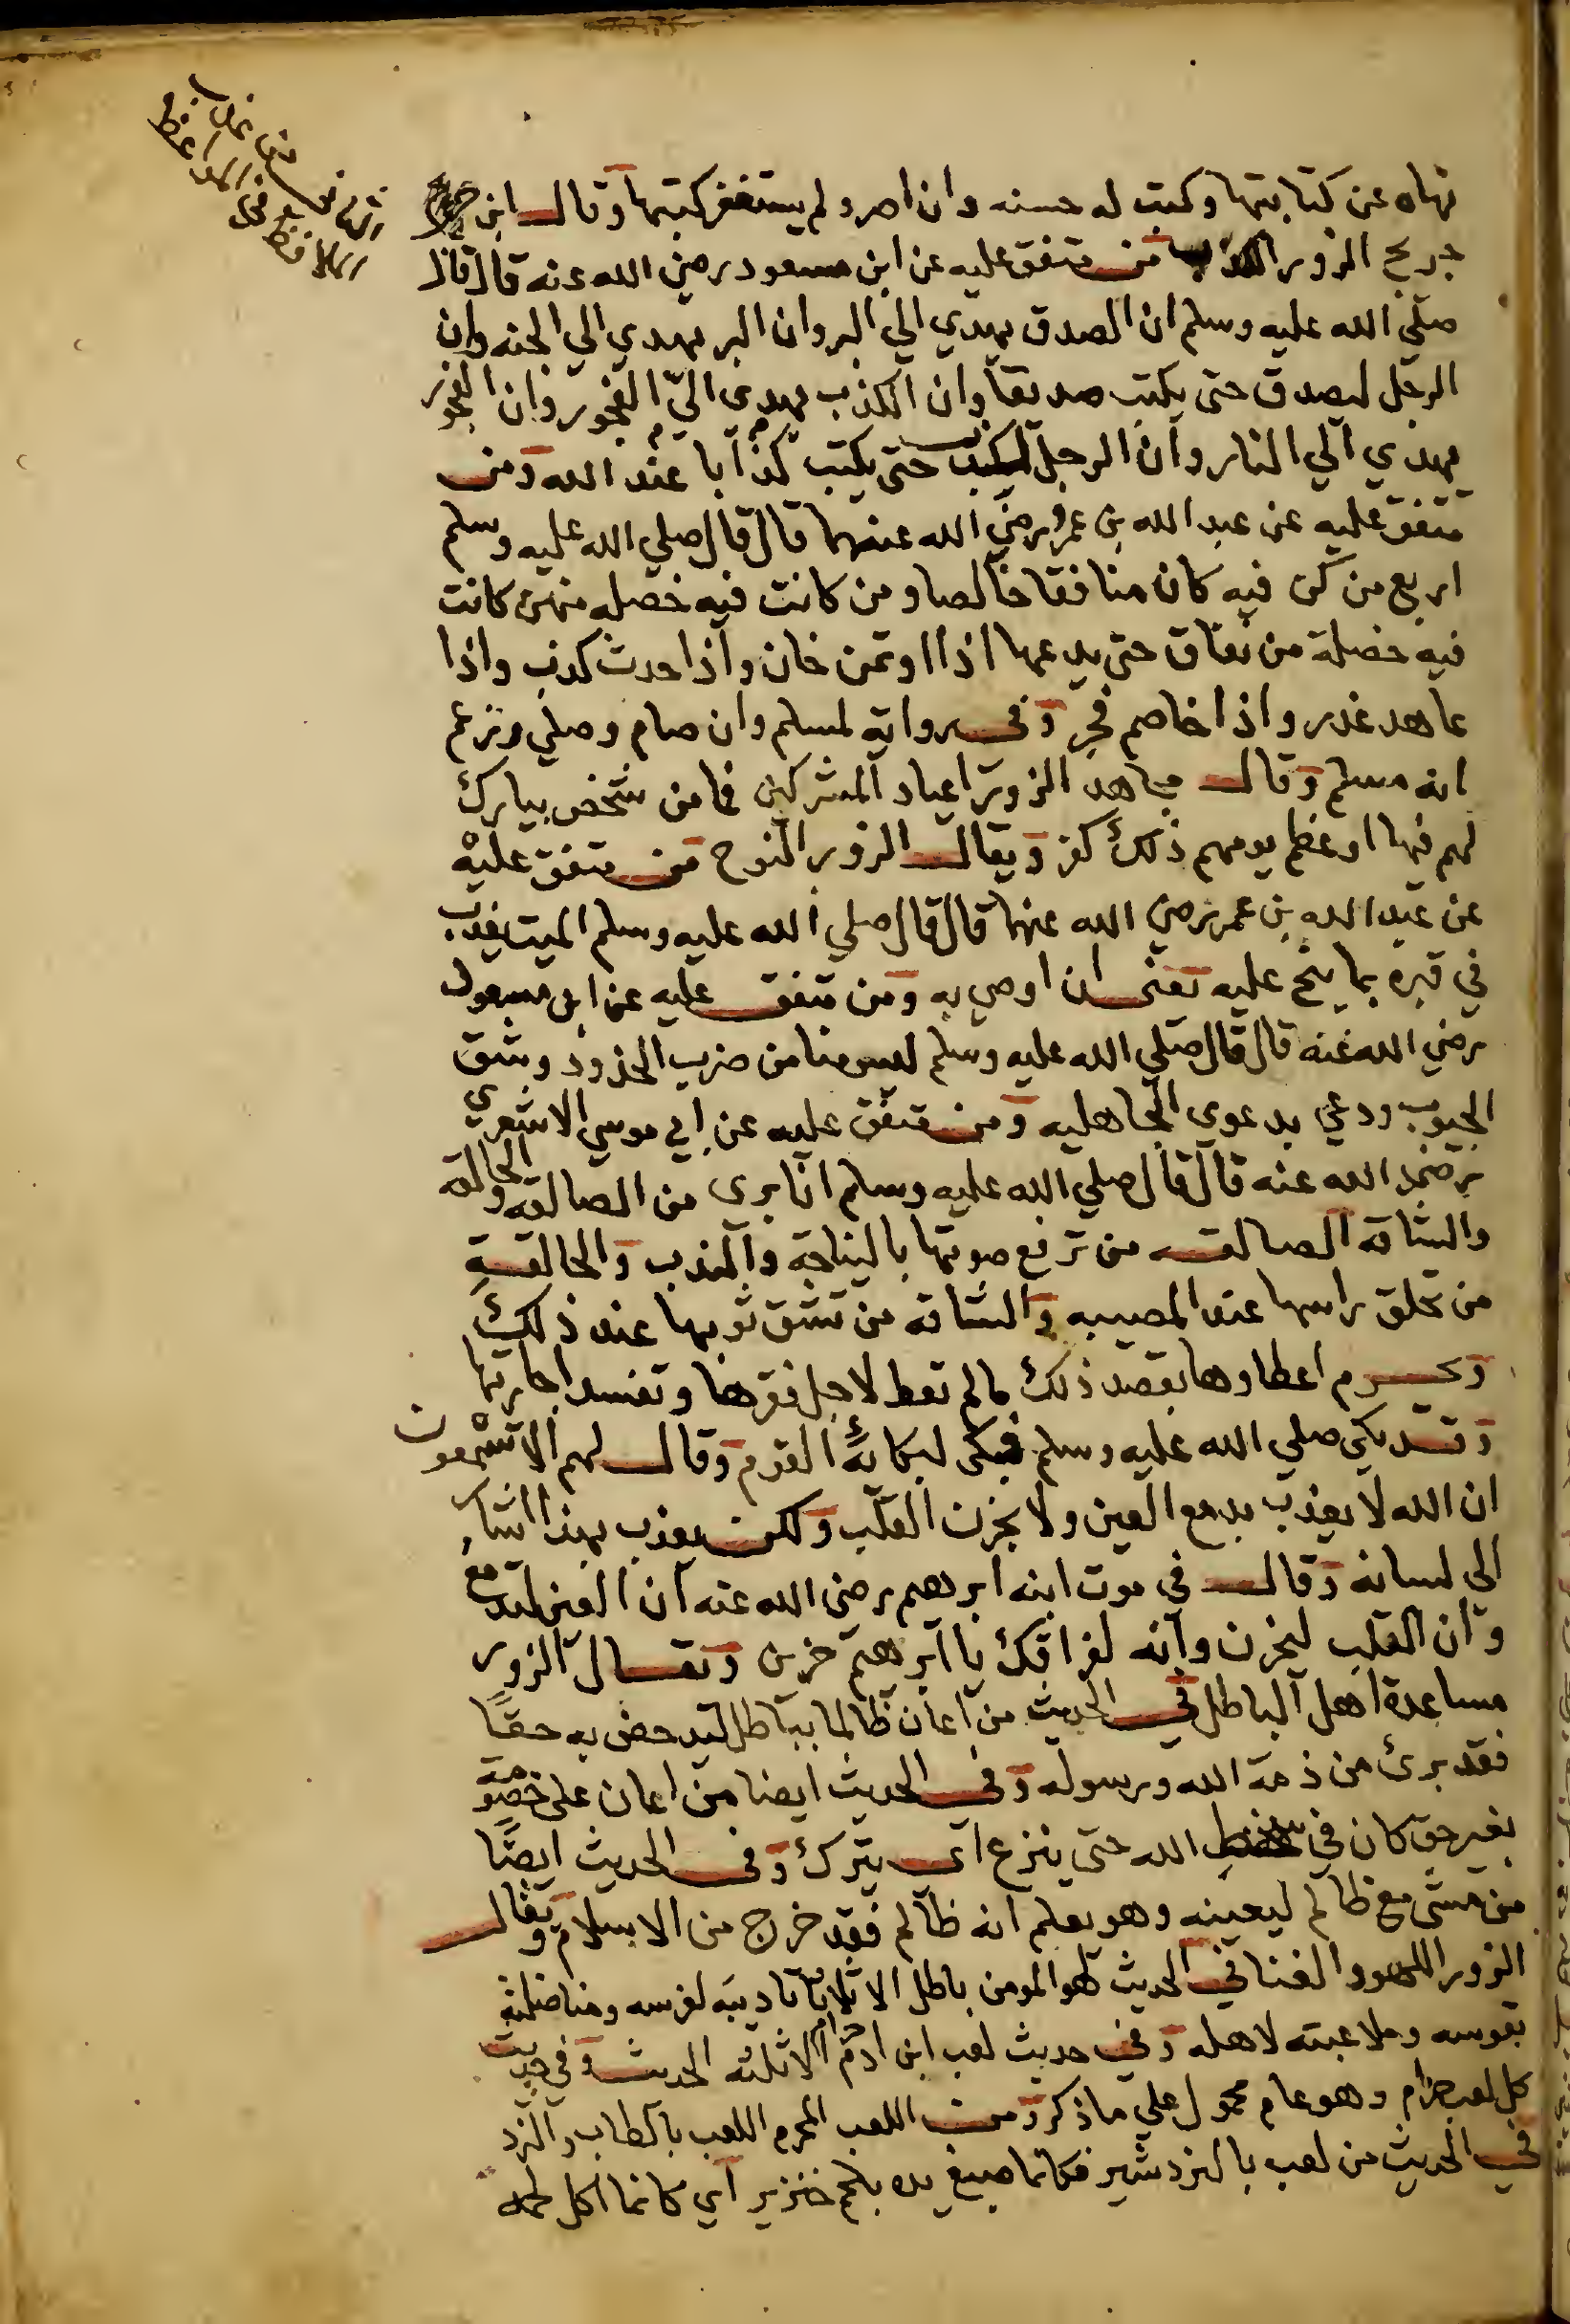 نهاه عن كتابتها وكتب له حسنه وان اصر ولم يستغفر كتبها وقال ابن
جريج الزور الكذب من متفق عليه عن ابن مسعود رضي الله عنه قال قال
صلي الله عليه وسلم ان الصدق يهدي الي البر وان البر يهدي الي الجنه وان
الرجل ليصدق حتى يكتب صديقا وان الكذب يهدى الي الفجور وان الفجور
يهدي الي النار وان الرجل ليكذب حتى يكتب كذابا عند الله ومن
متفق عليه عن عبد الله بن عمرو رضي الله عنهما قال قال صلي الله عليه وسلم
اربع من كن فيه كان منافقا خالصا ومن كانت فيه خصله منهن كانت
فيه خصلة من نفاق حتى يدعها اذا اوتمن خان واذا حدث كذب واذا
عاهد غدر واذا خاصم فجر وفى رواية لمسلم وان صام وصلي وزعم
انه مسلم وقال مجاهد الزور اعياد المشركين فما من شخص يبارك
لهم فيها او عظم يومهم ذلك كفر ويقال الزور النوح من متفق عليه
عن عبد الله بن عمر رضي الله عنهما قال قال صلي الله عليه وسلم الميت يعذب
في قبره بما ينح عليه يعنى ان اوصي به ومن متفق عليه عن ابن مسعود
رضي الله عنه قال قال صلي الله عليه وسلم ليس منا من ضرب الخدود وشق
الجيوب ودعي بدعوى الجاهليه ومن متفق عليه عن ابي موسي الاشعري
رضي الله عنه قال قال صلي الله عليه وسلم انا بري من الصالقه والحالقه
والشاقه الصالقه من ترفع صوتها بالنياحة والندب والحالقة
من تحلق راسها عند المصيبه والشاقه من تشق ثوبها عند ذلك
ويحرم اعطاوها بقصد ذلك مالم تعط لاجل فقرها وتفسد اجارتها
وقد بكى صلي الله عليه وسلم فبكى لبكائه القوم وقال لهم الا تسمعون
ان الله لا يعذب بدمع العين ولا بحزن القلب ولكن يعذب بهذا اشار
الي لسانه وقال في موت ابنه ابرهيم رضي الله عنه ان العين لتدمع
وان القلب ليحزن وانه لفراقك يا ابرهيم حزين ويقال الزور
مساعدة اهل الباطل في الحديث من اعان ظالما بباطل ليدحض به حقا
فقد برئ من ذمة الله ورسوله وفى الحديث ايضا من اعان على خصومة
بغير حق كان في سخط الله حتى ينزع اى يترك وفى الحديث ايضا
من مشى مع ظالم ليعينه وهو يعلم انه ظالم فقد خرج من الاسلام ويقال
الزور اللهو والغنا في الحديث لهو المومن باطل الا ثلاث تاديبه لفرسه ومناضلته
بقوسه وملاعبته لاهله وفي حديث لعب ابن ادم حرام الا ثلثه الحديث وفي حديث
كل لعب حرام وهو عام محمول علي ما ذكر ومن اللعب المحرم اللعب بالطاب والنرد
في الحديث من لعب بالنردشير فكانما صبغ يده بلحم خنزير اي كانما اكل لحمه